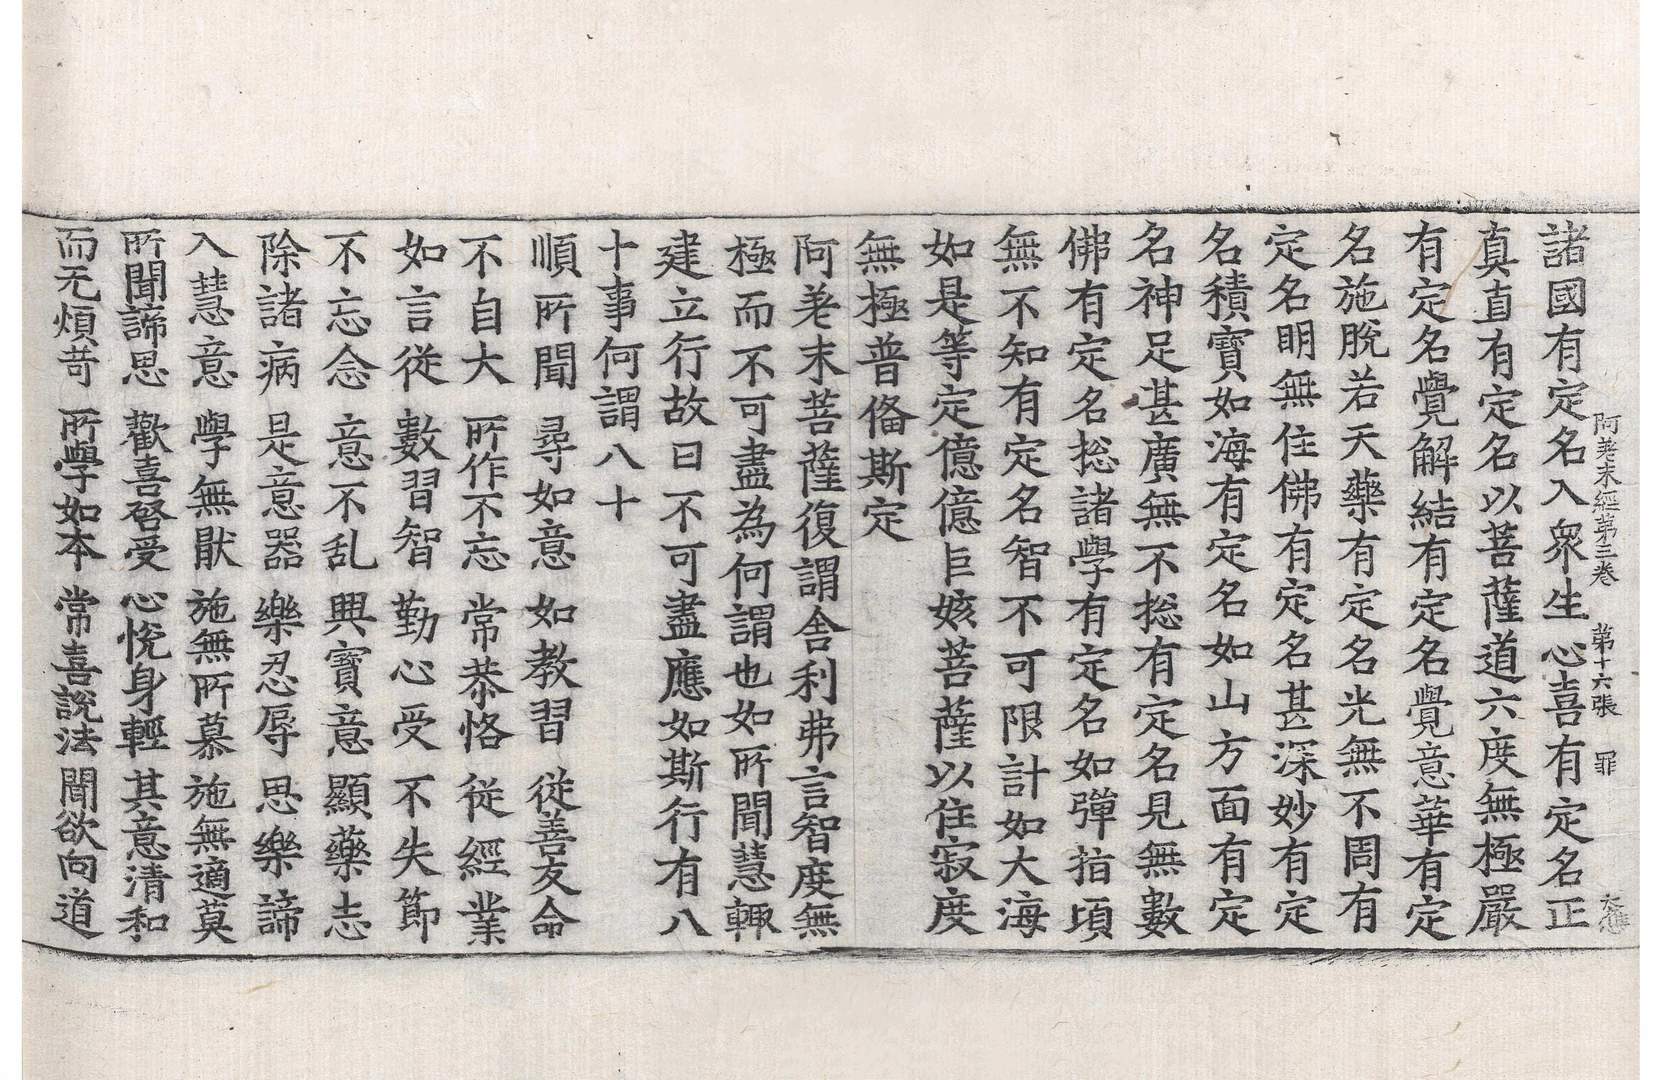 阿差末經第三卷　第十六張　罪
諸國有定名入衆生心喜有定名正
真直有定名以菩薩道六度無極嚴
有定名覺解結有定名覺意華有定
名施脫若天藥有定名光無不周有
定名明無住佛有定名甚深妙有定
名積寶如海有定名如山方面有定
名神足甚廣無不揔有定名見無數
佛有定名揔諸學有定名如彈指頃
無不知有定名智不可限計如大海
如是等定億億巨姟菩薩以住寂度
無極普俻斯定
阿差末菩薩復謂舍利弗言智度無
極而不可盡為何謂也如所聞慧輙
建立行故曰不可盡應如斯行有八
十事何謂八十
順所聞　尋如意　如教習　從善友命
不自大　所作不忘　常恭恪　從經業
如言從　數習智　勤心受　不失節
不忘念　意不乱　興寶意　顯藥志
除諸病　是意器　樂忍辱　思樂諦
入慧意　學無猒　施無所慕　施無適莫
所聞諦思　歡喜啓受　心恱身輕　其意清和
而无煩苛　所學如本　常喜說法　聞欲向道